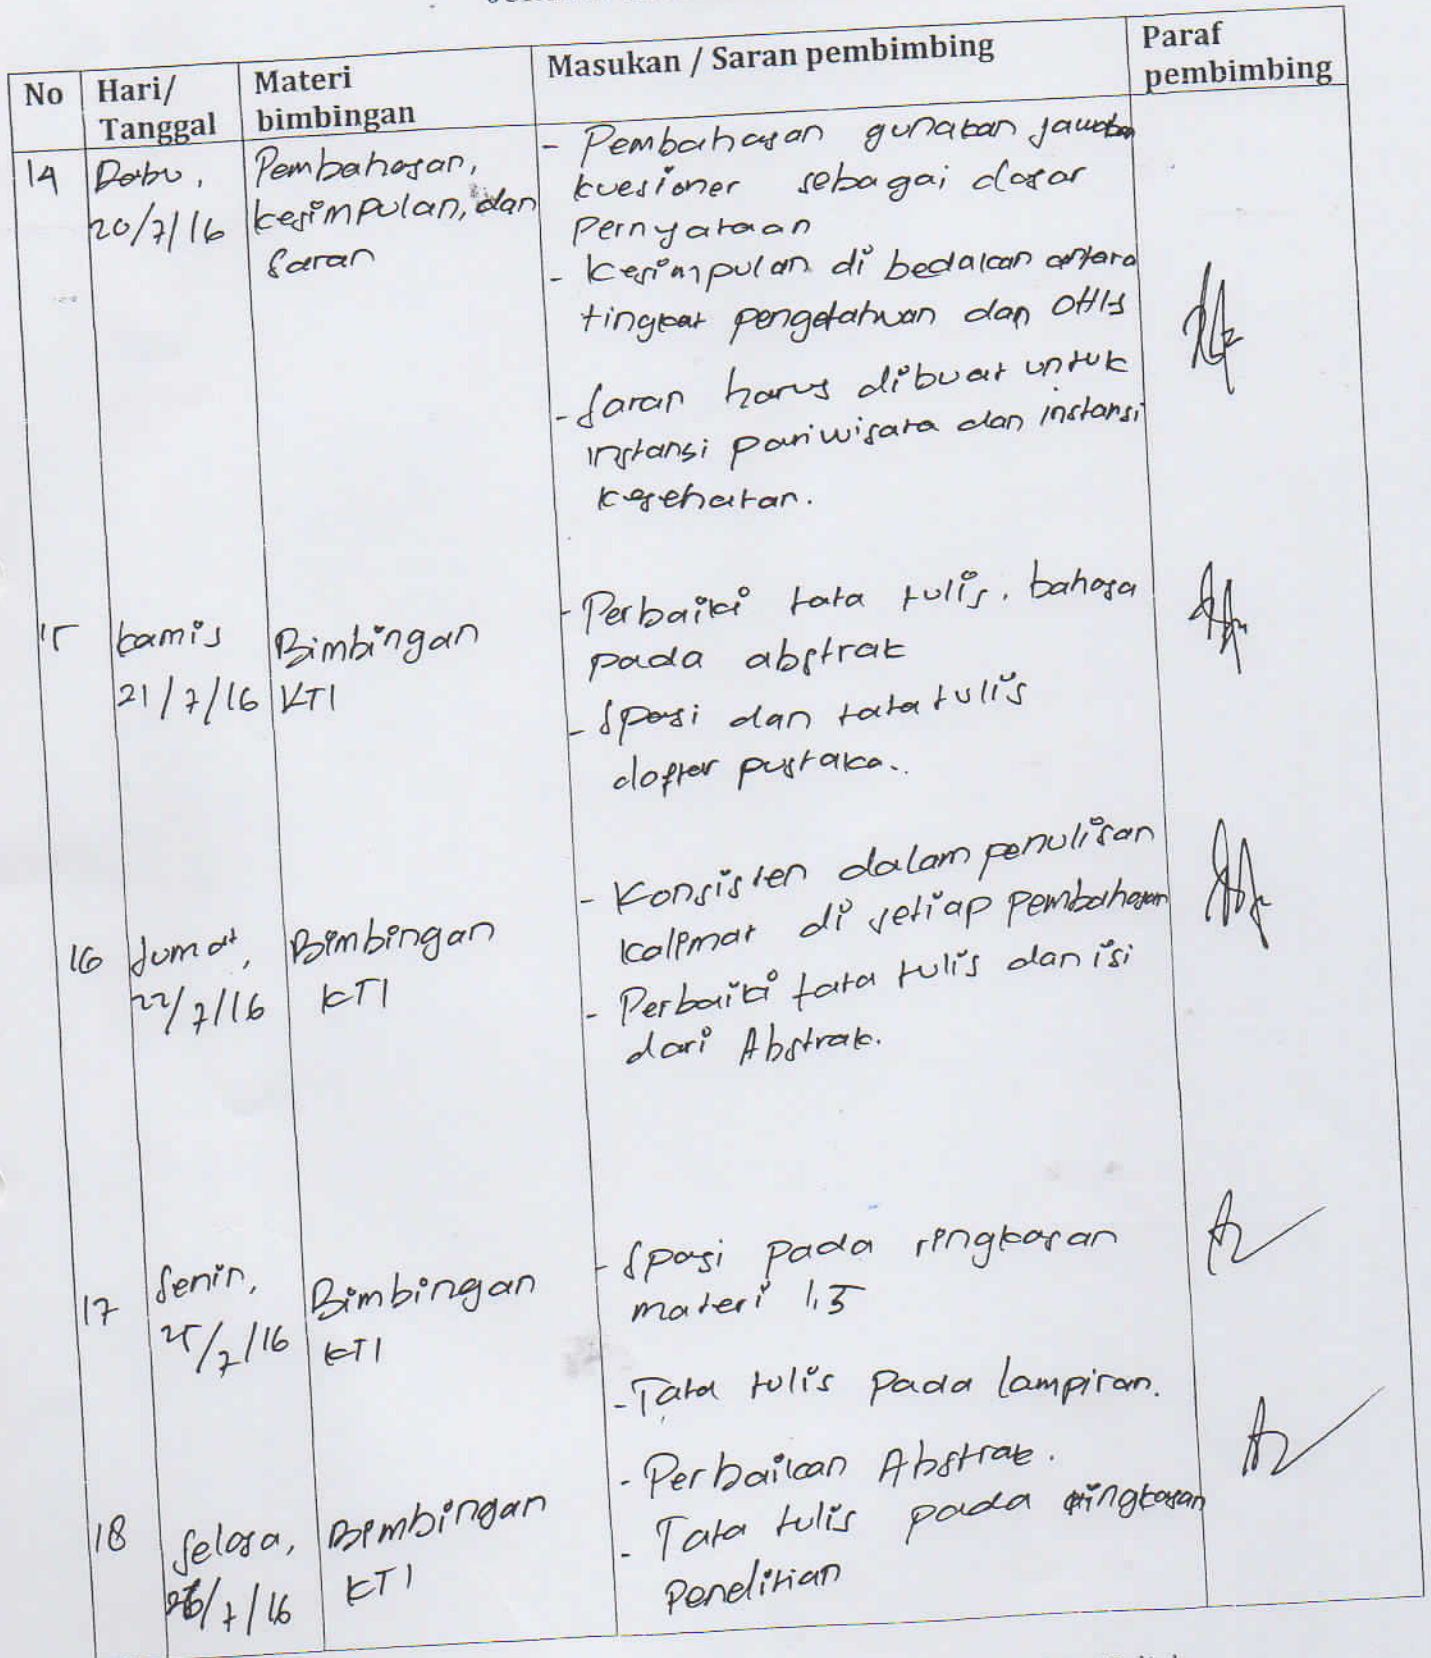 No
Hari/
Tanggal
Materi
bimbingan
Masukan / Saran pembimbing
Paraf
pembimbing
14
Rabu,
20/7/16
Pembahasan,
kesimpulan, dan
saran
- Pembahasan gunakan jawaban
kuesioner sebagai dasar
pernyataan
- Kesimpulan di bedakan antara
tingkat pengetahuan dan OHIS
- Saran harus dibuat untuk
instansi pariwisata dan instansi
kesehatan.
15
Kamis
21/7/16
Bimbingan
KTI
- Perbaiki tata tulis, bahasa
pada abstrak
- Spasi dan tata tulis
daftar pustaka..
16
Jumat,
22/7/16
Bimbingan
KTI
- Konsisten dalam penulisan
kalimat di setiap pembahasan
- Perbaiki tata tulis dan isi
dari Abstrak.
17
Senin,
25/7/16
Bimbingan
KTI
- Spasi pada ringkasan
materi 1.5
- Tata tulis pada lampiran.
18
Selasa,
26/7/16
Bimbingan
KTI
- Perbaikan Abstrak.
- Tata tulis pada ringkasan
Penelitian